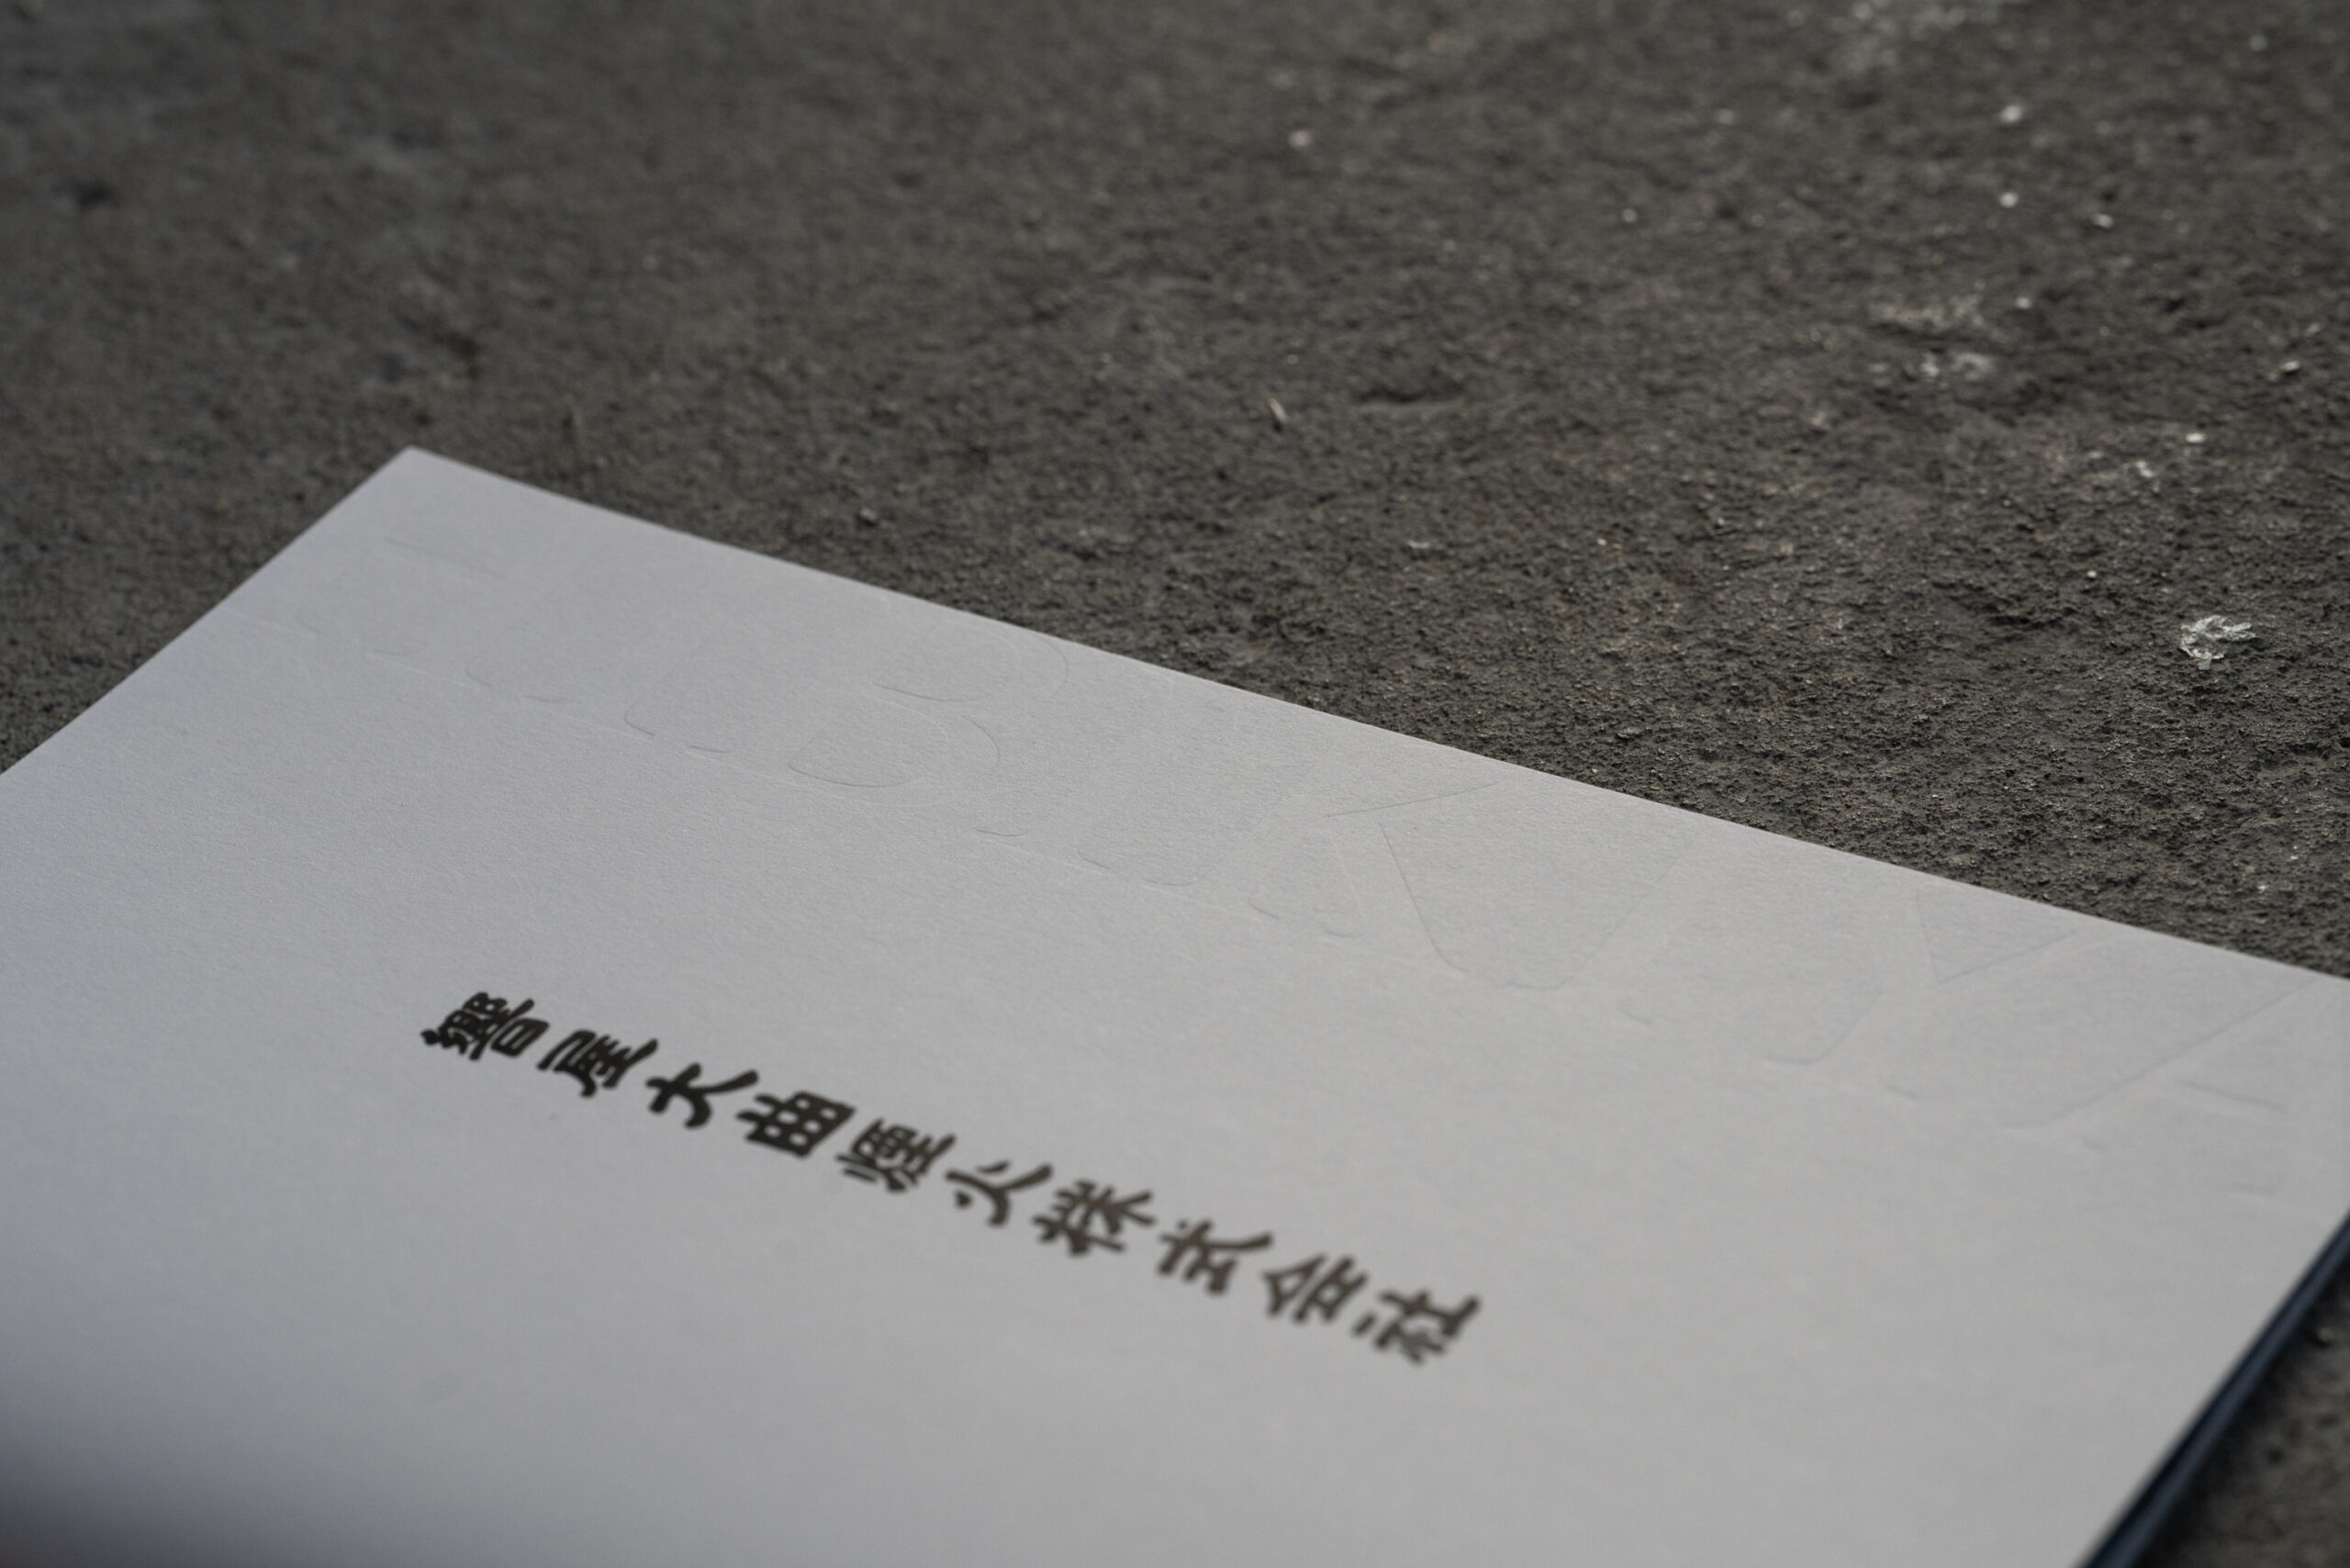 響屋大曲煙火株式会社